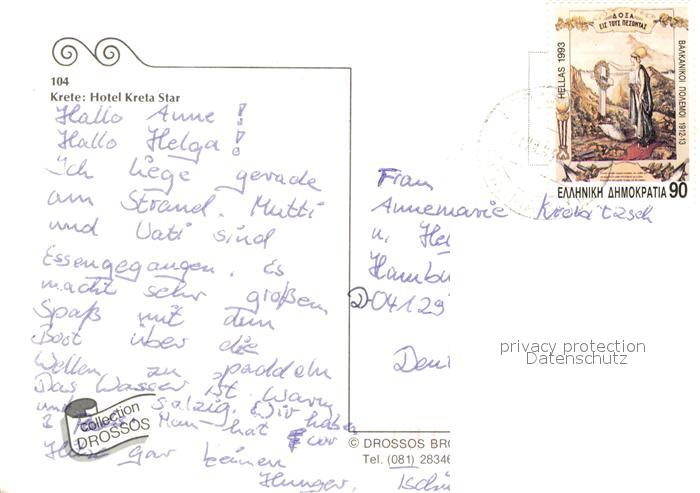 104
Krete: Hotel Kreta Star
Hallo Anne!
Hallo Helga!
Ich liege gerade
am Strand. Mutti
und Vati sind
Essengegangen. Es
macht sehr großen
Spaß mit dem
Boot über die
Wellen zu paddeln
Das Wasser ist warm
und salzig. Wir haben
2 Man hat vor
Hitze gar keinen
Hunger. Tschü
collection
DROSSOS
© DROSSOS BRO
Tel. (081) 28346
Frau
Annemarie Krebitzsch
u. Hel
Hambu
D-04129
Deu
ΔΟΞΑ
ΕΙΣ ΤΟΥΣ ΠΕΣΟΝΤΑΣ
HELLAS 1993
ΒΑΛΚΑΝΙΚΟΙ ΠΟΛΕΜΟΙ 1912-13
ΕΛΛΗΝΙΚΗ ΔΗΜΟΚΡΑΤΙΑ 90
privacy protection
Datenschutz